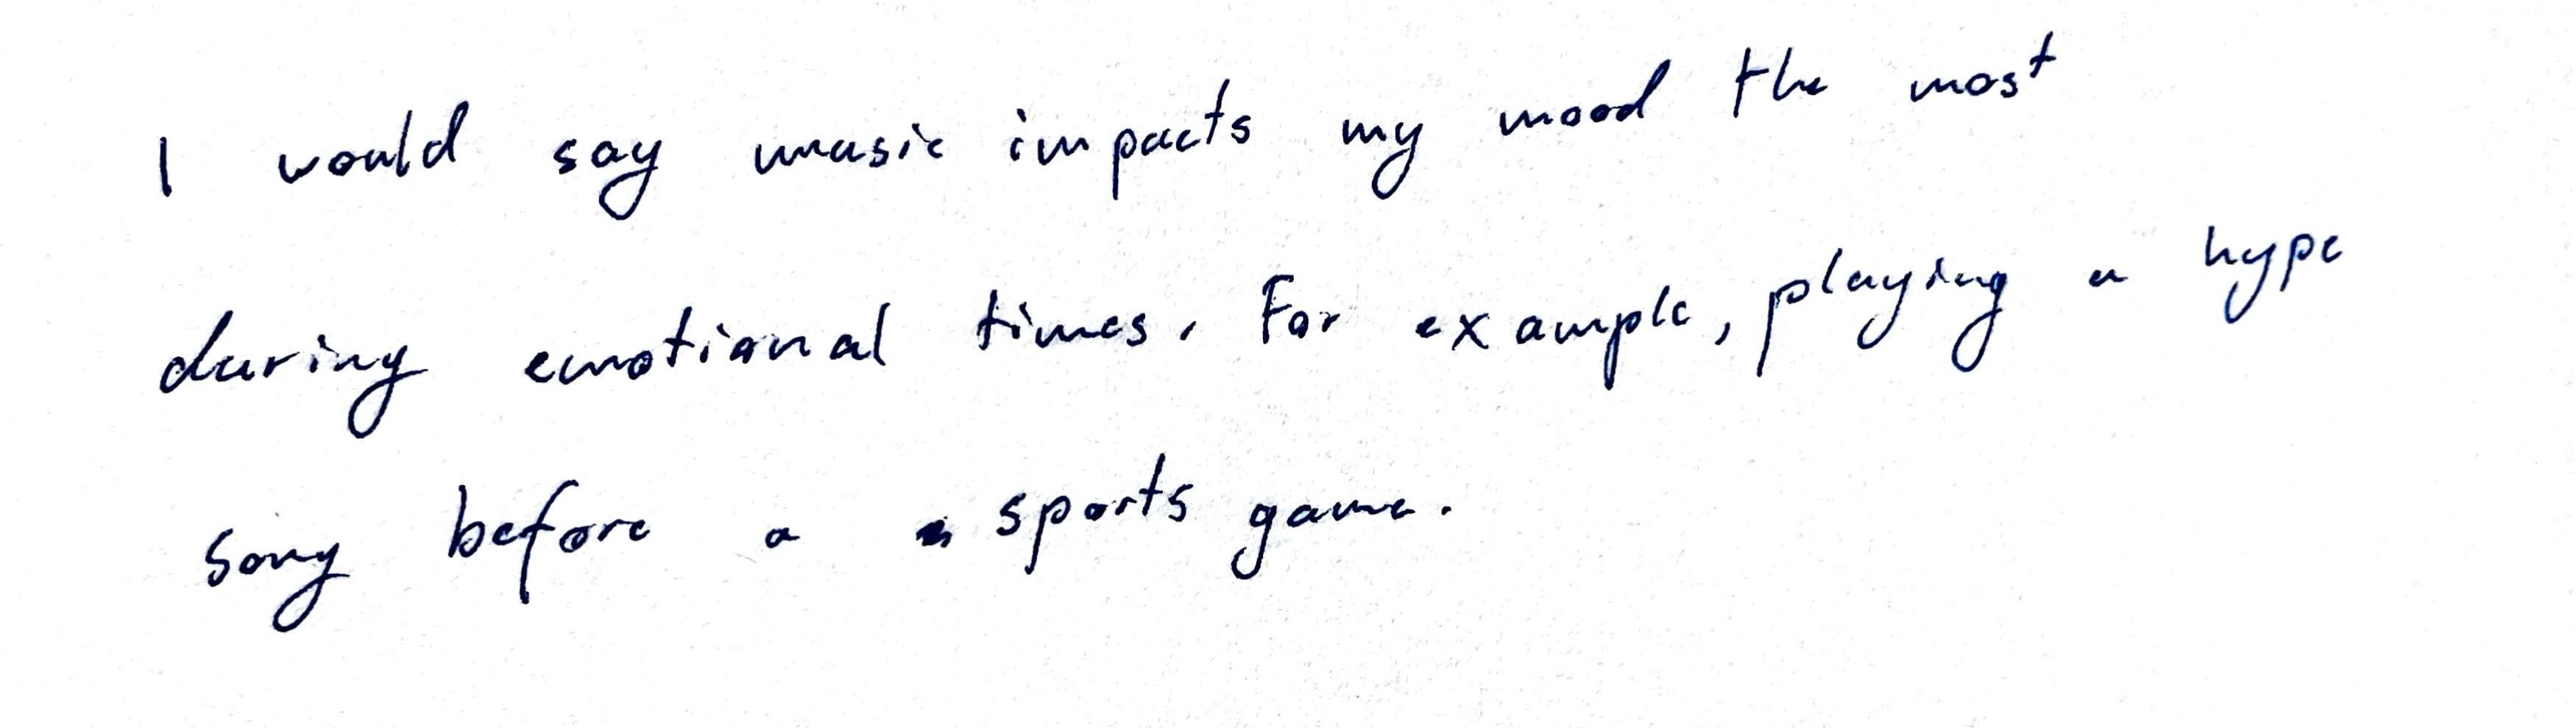 I would say music impacts my mood the most
during emotional times. For example, playing a hype
song before a sports game.